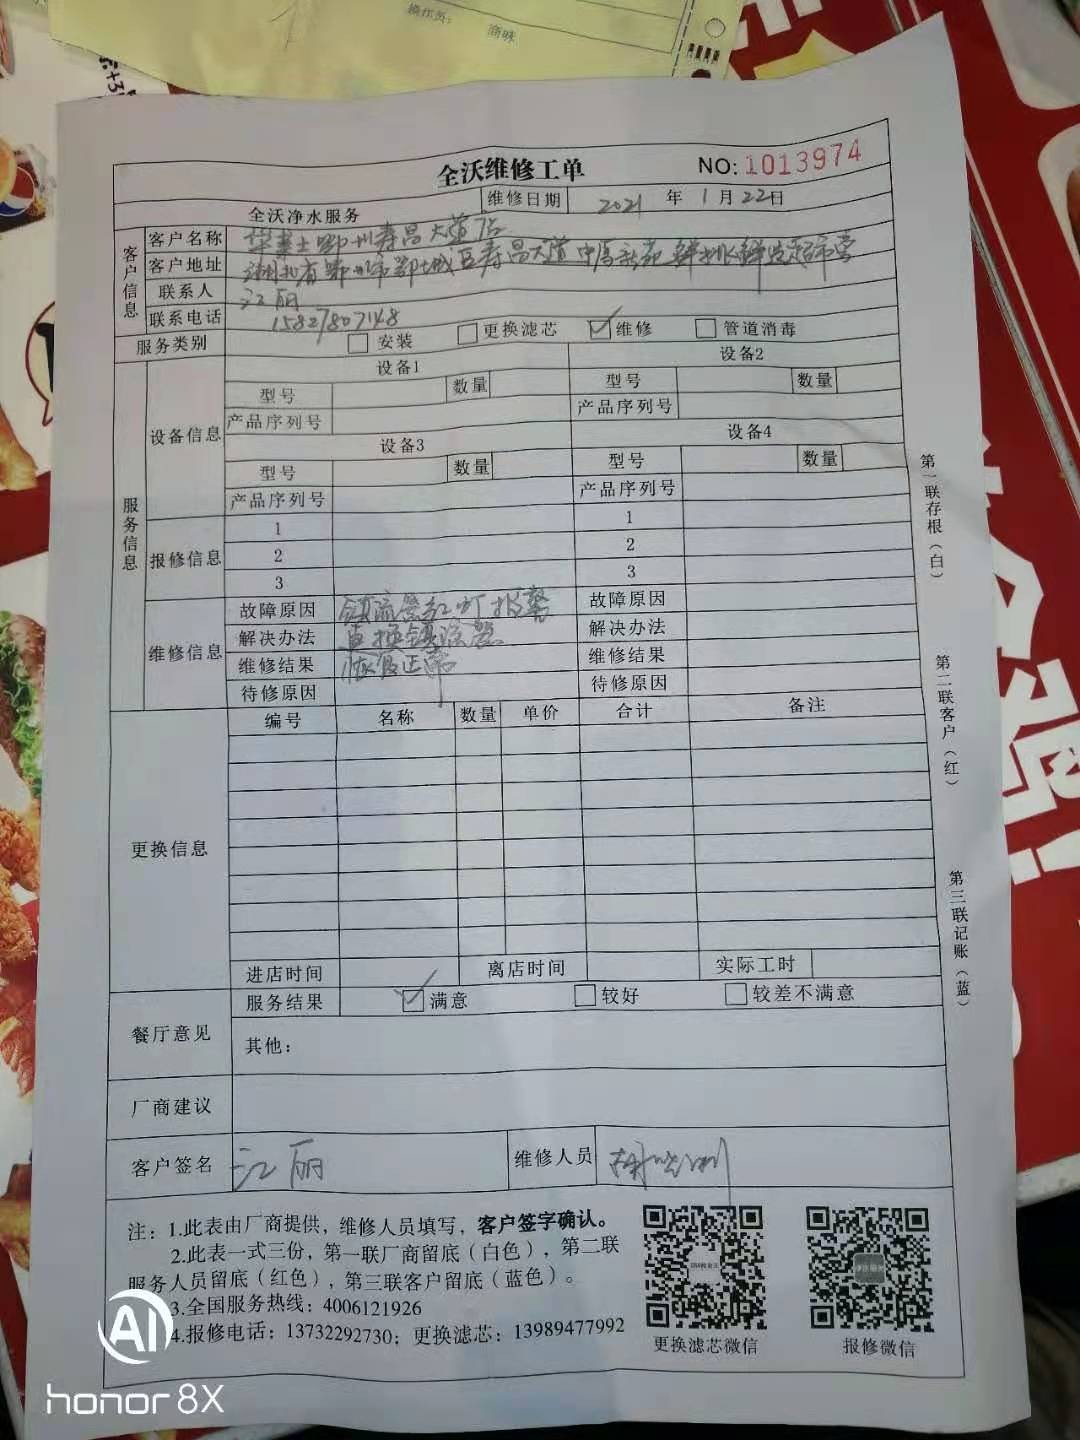 操作员：
商味
全沃维修工单
NO: 1013974
全沃净水服务 维修日期 2021 年 1 月 22 日
客户信息
客户名称 华莱士鄂州寿昌大道店
客户地址 湖北省鄂州市鄂城区寿昌大道
联系人 江丽
联系电话 15827807148
服务类别 安装 更换滤芯 ✓ 维修 管道消毒
服务信息
设备信息
设备1 设备2
型号 数量 型号 数量
产品序列号 产品序列号
设备3 设备4
型号 数量 型号 数量
产品序列号 产品序列号
报修信息
1 1
2 2
3 3
维修信息
故障原因 镇流器红灯报警 故障原因
解决办法 更换镇流器 解决办法
维修结果 恢复正常 维修结果
待修原因 待修原因
更换信息
编号 名称 数量 单价 合计 备注
进店时间 离店时间 实际工时
餐厅意见
服务结果 ✓ 满意 较好 较差不满意
其他：
厂商建议
客户签名 江丽 维修人员
注：1.此表由厂商提供，维修人员填写，客户签字确认。
2.此表一式三份，第一联厂商留底（白色），第二联
服务人员留底（红色），第三联客户留底（蓝色）。
3.全国服务热线：4006121926
4.报修电话：13732292730；更换滤芯：13989477992
更换滤芯微信
报修微信
第一联存根（白）
第二联客户（红）
第三联记账（蓝）
AI
honor 8X